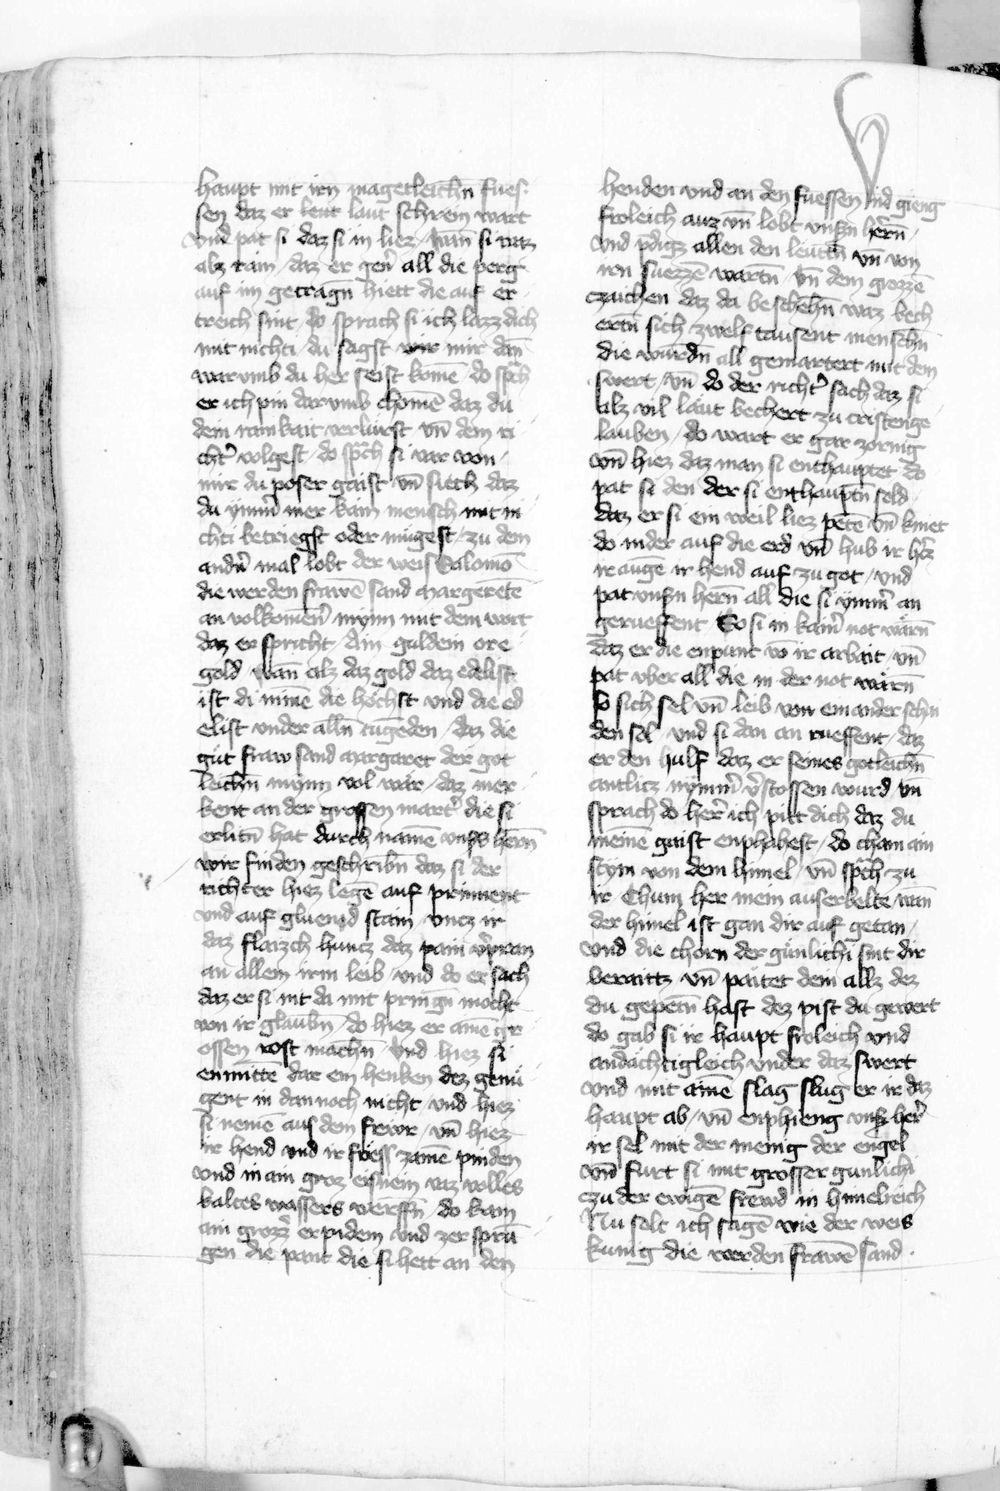 haupt mit irn magetleichn̄ fues
sen daz er leut laut schrein wart
vnd pat si daz si in liez / wan̄ si waz
alz rain / daz er gern̄ all die perg
auf im getragn̄ hiett die auf er
treich sint / do sprach si ich lazz dich
mit nichti / du sagst mir dan̄
warvmb du her seist komē / do sp̄ch
er ich pin darvmb chomē daz du
dein rainkait verlurst vn̄ dem ri
cht̓ volgest / do sp̄ch si var von
mir du poser gaist vn̄ fleuch daz
du ynm̄ mer kain mensch mit ni
chti betriegst oder mügest / zu dem
andn̓ mal lobt der weis Salomō
die werden frawē sand Margretē
an volkomen̓ mynn mit dem wort
daz er spricht / Ain guldein ore
gold / wan̄ alz daz gold daz edelist
ist di minne die höchst vnd die ed
elist vnder alln̄ tugēden / daz die
gut fraw sand Margaret der got
leichn̄ mynn vol wär / daz mer
kent an der grossen mart̓ die si
erlitn̄ hat durch namē vnss hern̄
wir finden geschribn̄ daz si der
richter hiez legē auf prinnent
vnd auf gluenid stain / vncz ir
daz flaizch huncz daz pain v̓pran
an allem irm leib / vnd do er sach
daz er si nit da mit pringn̄ mocht
von ir glaubn̄ / do hiez er ainē gr
ossen rost machn̄ vnd hiez si
enmittē dar ein henken dez genü
gent in dannoch nicht / vnd hiez
si nemē aus dem fewr / vn̄ hiez
ir hend vnd ir füess zame pinden
vnd in ain groz eisnein vaz volles
kaltes wassers werffn̄ / do kam
ain grozz̓ erpidem vnd zersprū
gen die pant die si hett an den
henden vnd an den fuessen vnd gieng
froleich auz vn̄ lobt vnsn̄ hern̄
vnd p̄digz allen den leuttn̄ vn̄ von
irn suezzē wartn̄ / vn̄ dem grozzē
czaichen daz da beschehn̄ waz bech
ertn̄ sich zwelf tausent menschn̄
die wurdn̄ all gemartert mit dem
swert / vn̄ do der richt̓ sach daz si
alz vil läut bechert zu cristenge
lauben / do wart er gar zornig
vn̄ hiez daz man si enthauptet do
pat si den der si enthauptn̄ sold
daz er si ein weil liez petē vn̄ kniet
do nider auf die erd vn̄ hub ir hrz̄
ir auge ir hend auf zu got / vnd
pat vnsn̄ hern̄ all die si ynm̓ an
gerueffent / So si in kain̓ not wärn̄
daz er die enpunt vō ir arbait / vn̄
pat vber all die in der not wärn̄
so sich sel vn̄ leib von einander schin
den sol / vnd si dan an rueffent / daz
er den hulf daz er seines gotleichn̄
antlicz nymm̓ v̓stossen wurd / vn̄
sprach do her̓ ich pitt dich daz du
meinē gaist enphahest / do cham ain
stym von dem himel / vn̄ sp̄ch zu
ir Chum her mein auserbelte wan̄
der himel ist gan dir auf getan /
vnd die chorn der günlichi sint dir
beraittz vn̄ paitet dein allz dez
du gepetn̄ hast dez pist du gewert
do gab si ir haupt froleich vnd
andachtigleich vnder daz swert
vnd mit ainē slag slug er ir daz
haupt ab / vn̄ enphieng vnsz her̓
ir sel mit der menig der engel
vn̄ furt si mit grosser günlichi
czu der ewigē frewd in himelreich
Nu solt ich sagē wie der weis
kunig die werden frawē sand